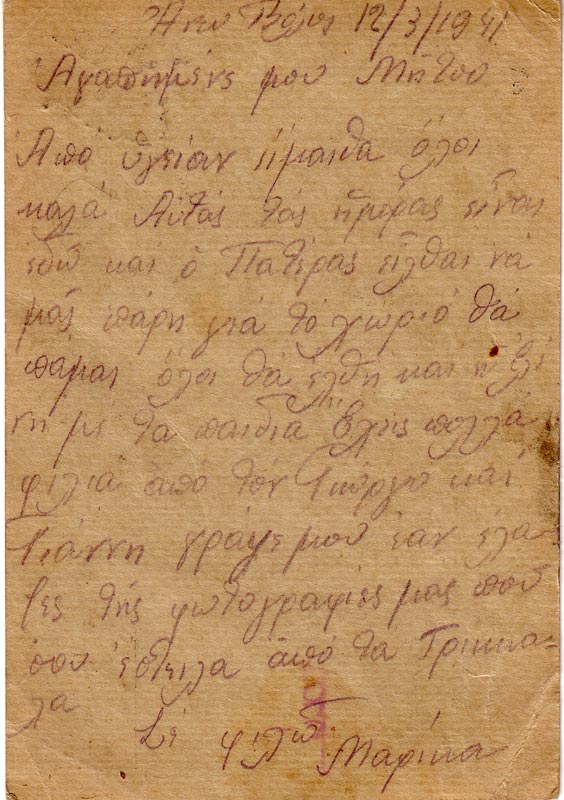 Άνω Βόλος 12/3/1941
Αγαπημένε μου Μήτσο
Απο ὑγείαν είμαιθα όλοι
καλά Αὐτάς τάς ημέρας εἶναι
εδῶ και ὁ Πατέρας εἶλθαι νά
μᾶς πάρη γιά τό χωριό θά
πάμαι όλοι θά έλθη και η Ελέ
νη μέ τα παιδιά έχεις πολλά
φιλιά από τόν Γιώργο καί
Γιάννη γράψε μου εάν έλα
βες τής φωτογραφίες μας πού
σου έστειλα από τα Τρικκα-
λα
Σέ φιλῶ Μαρίκα